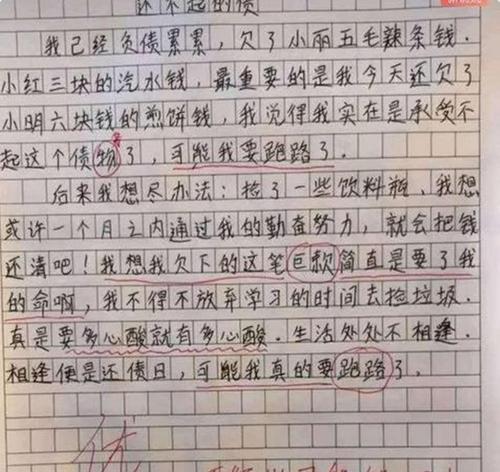 还不起的债
我已经负债累累，欠了小丽五毛辣条钱.
小红三块的汽水钱，最重要的是我今天还欠了
小明六块钱的煎饼钱，我觉得我实在是承受不
起这个债物了，可能我要跑路了.
后来我想尽办法：捡了一些饮料瓶、我想
或许一个月之内通过我的勤奋努力，就会把钱
还清吧！我想我欠下的这笔巨款简直是要了我
的命啊，我不得不放弃学习的时间去捡垃圾.
真是要多心酸就有多心酸.生活处处不相逢.
相逢便是还债日，可能我真的要跑路了.
优